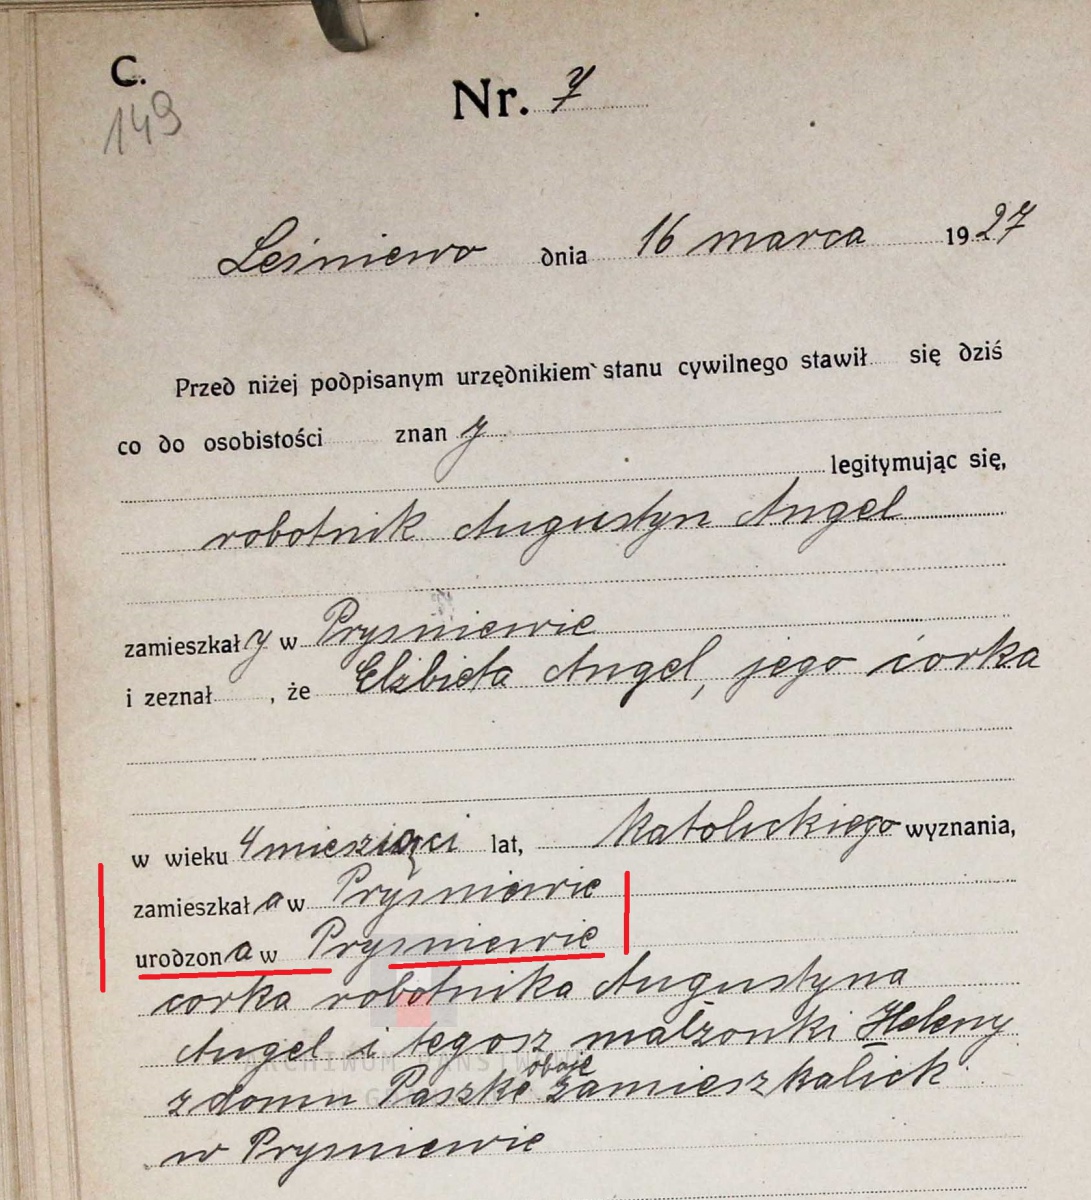 C.
149
Nr. 7
Leśniewo dnia 16 marca 1927
Przed niżej podpisanym urzędnikiem stanu cywilnego stawił się dziś
co do osobistości znan y
legitymując się,
robotnik Augustyn Angel
zamieszkał y w Prysniewie
i zeznał , że Elżbieta Angel, jego córka
w wieku 4 miesziąci lat, katolickiego wyznania,
zamieszkał a w Pryśniewie
urodzon a w Prysniewie
córka robotnika Augustyna
Angel i tegosz małzonki Heleny
z domu Paszke oboje zamieszkalick
w Prysniewie